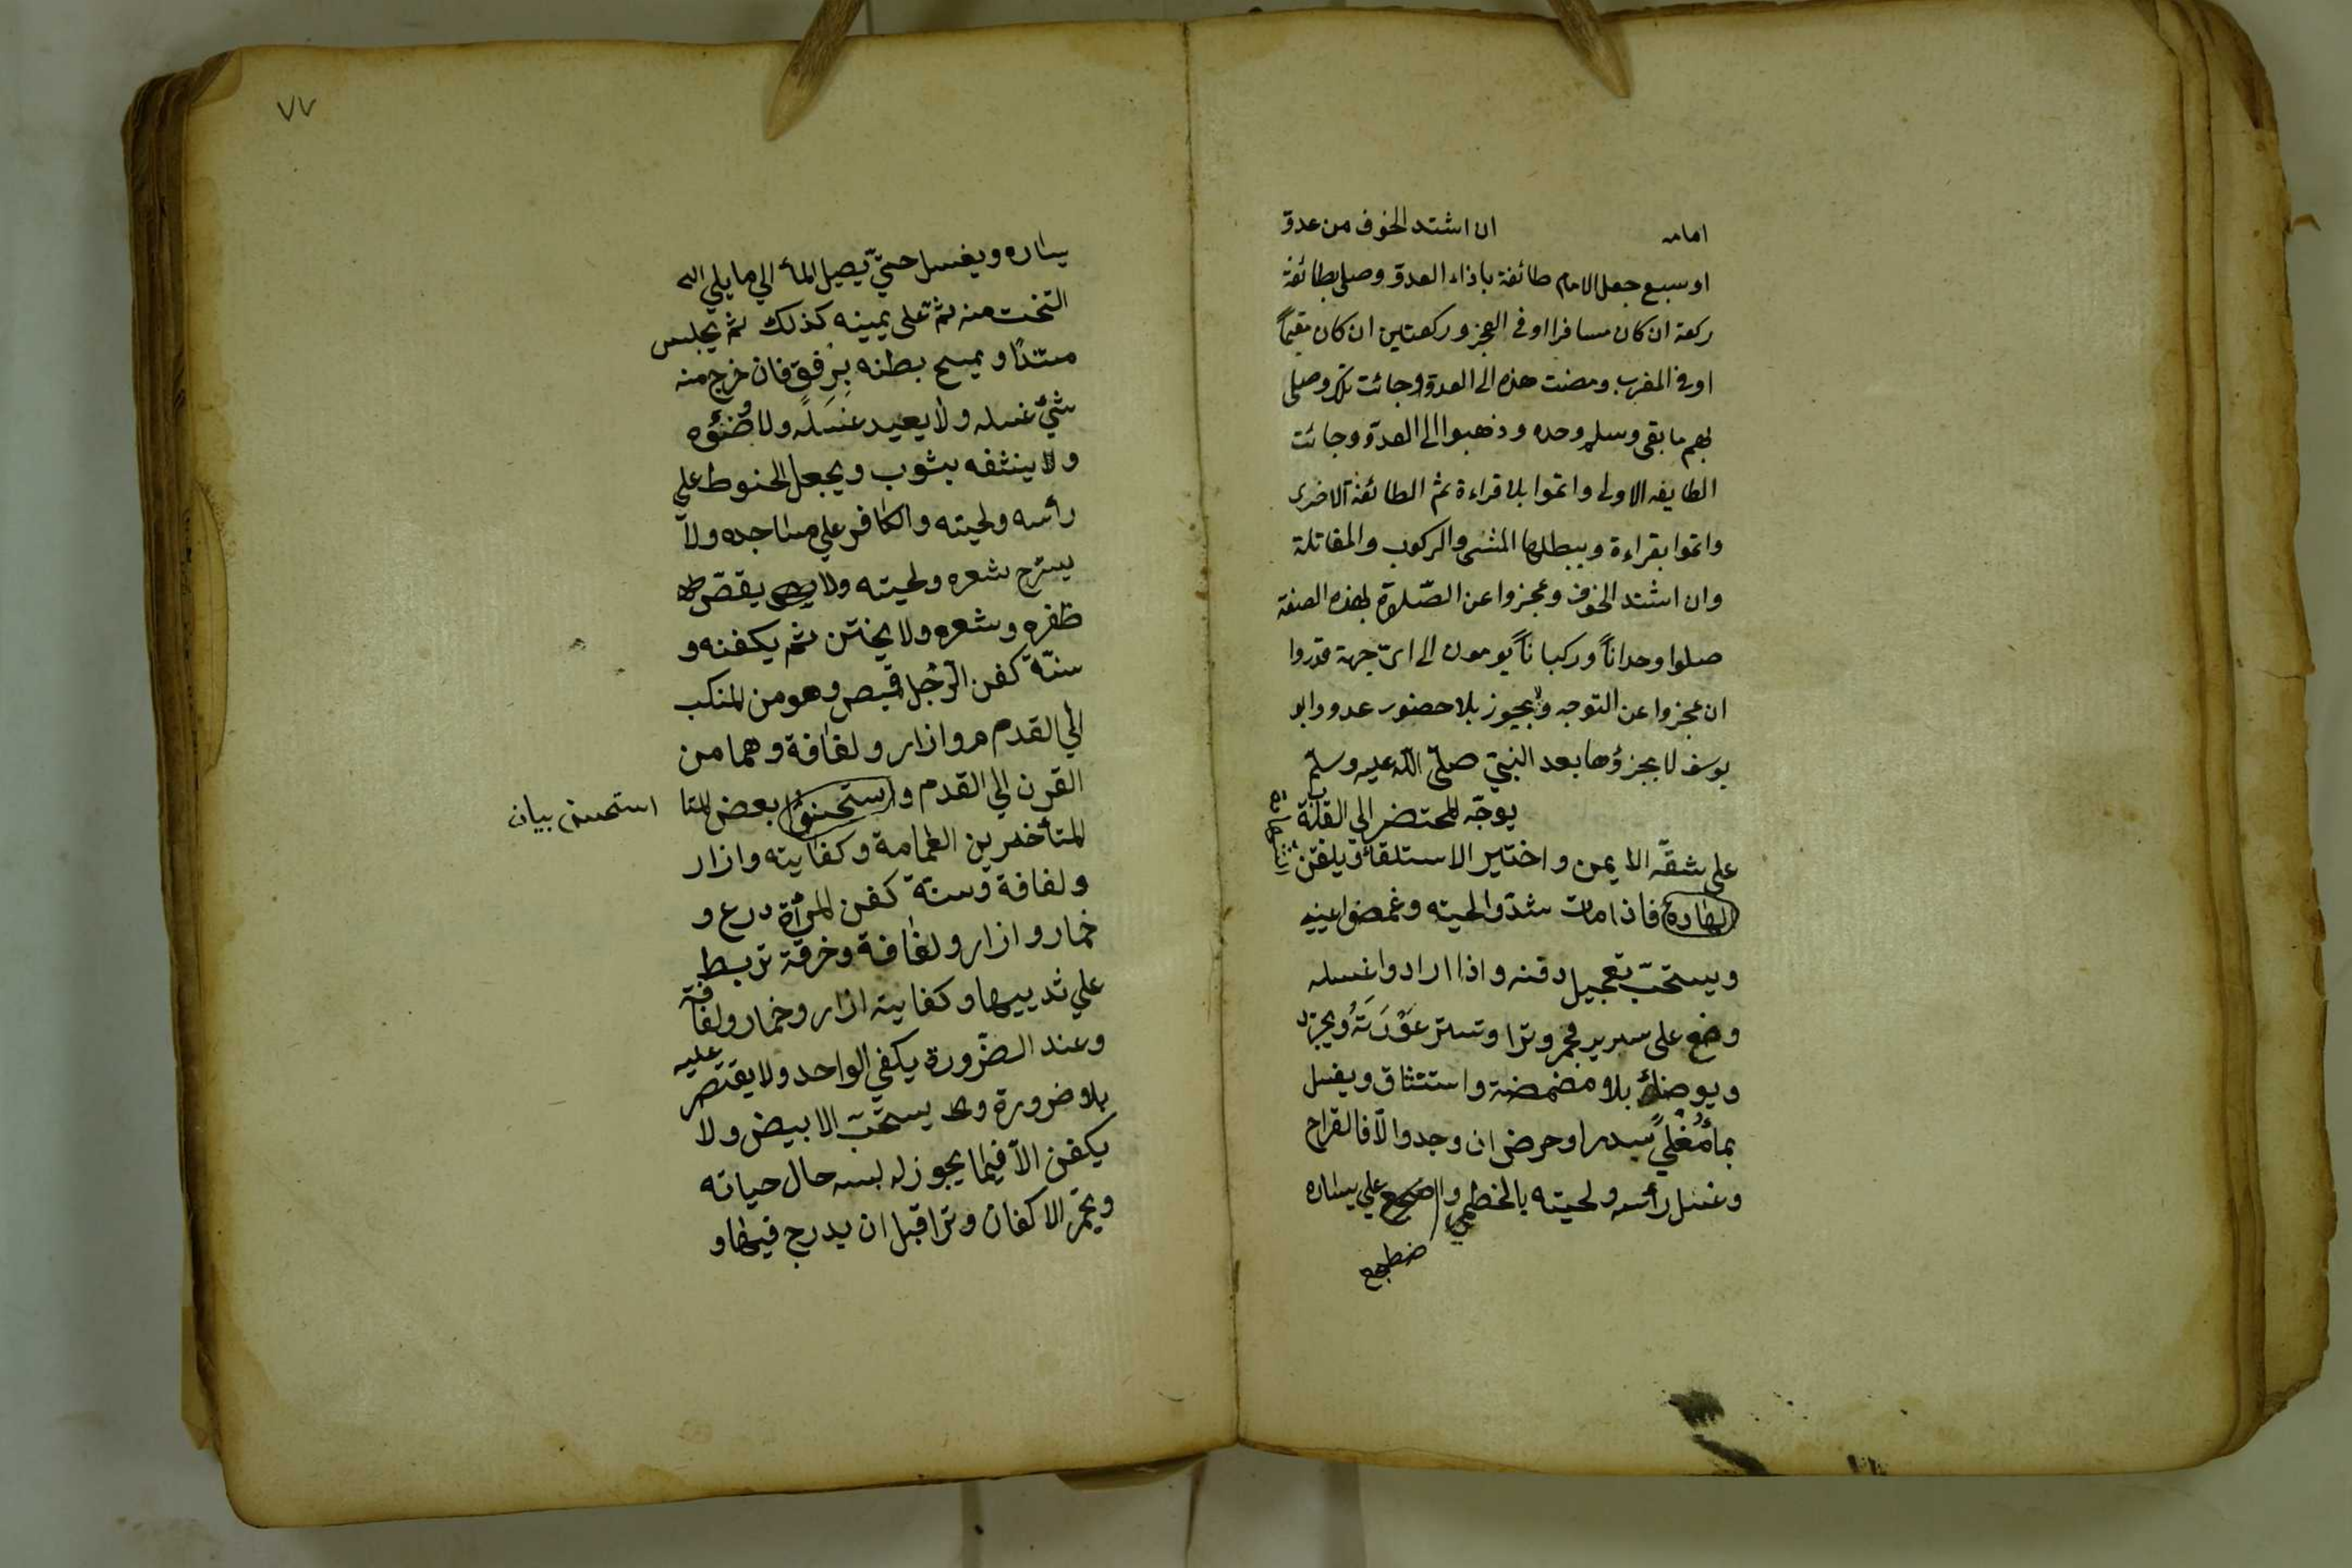 امامه ان اشتد الخوف من عدوّ
او سبع جعل الامام طائفة باذاء العدوّ وصلى بطائفة
ركعة ان كان مسافرا او فى الفجر وركعتين ان كان مقيماً
او فى المغرب ومضت هذه الى العدوّ وجائت تلك وصلى
بهم ما بقى وسلم وحده وذهبوا الى العدوّ وجائت
الطايفه الاولى واتموا بلا قراءة ثم الطائفة الاخرى
واتموا بقراءة ويبطلها المشى والركوب والمقاتلة
وان اشتد الخوف وعجزوا عن الصّلاة بهذه الصفة
صلوا وحداناً وركباناً يومون الى اىّ جهة قدروا
ان عجزوا عن التوجه ولا يجوز بلا حضور عدو وابو
يوسف لا يجزؤها بعد النبيّ صلّى اللّه عليه وسلّم
يوجّه المحتضر الي القبلة
على شقّه الايمن واختير الاستلقأ ويلقّن
الشهادة فاذا مات شدّوا لحيته وغمضوا عينيه
ويستحبّ تعجيل دفنه واذا ارادوا غسله
وضع على سرير مجمر وترا وتستر عَوْرَتَهُ ويجرّد
ويوضأ بلا مضمضة واستنثاق ويغسل
بمأ مُغْليً بسدر او حرض ان وجد والاّ فالقراح
وغسل رأسه ولحيته بالخطمي واضجع علي يساره
ضطجع
٧٧
يساره ويغسل حتيّ يصيل المأ الي ما يلي الى
التخت منه ثمّ على يمينه كذلك ثم يجلس
مستندًا ويمسح بطنه بِرفق فان خرج منه
شئ غسله ولا يعيد غسَلهَ ولا وضئوه
ولا ينثفه بثوب ويجعل الحنوط علي
رأسه ولحيته والكافر علي مساجده ولا
يسترح شعره ولحيته ولا يقصّ
ظفره وشعره ولا يختن ثم يكفنه و
سنّة كفن الرّجل قميص وهو من المنكب
الي القدم وازار ولفافة وهما من
القرن الي القدم واستحسنوا بعض المتا
استحسن بيان
المتأخدرين العمامة وكفايته وازار
ولفافة وسنة كفن المرأة درع و
خمار وازار ولفافة وخرقة تربط
علي ثدييها وكفايته ازار وخمار ولفافة
وعند الضّرورة يكفي الواحد ولا يقتصر عليه
بلا ضرورة ويستحبّ الابيض ولا
يكفن الاّ فيما يجوز له لبسه حال حياته
ويجمّر الاكفان وترا قبل ان يدرج فيها و